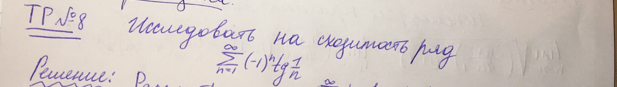 ТР №8 Исследовать на сходимость ряд
∞
∑ (-1)ⁿ tg 1/n
n=1
Решение: